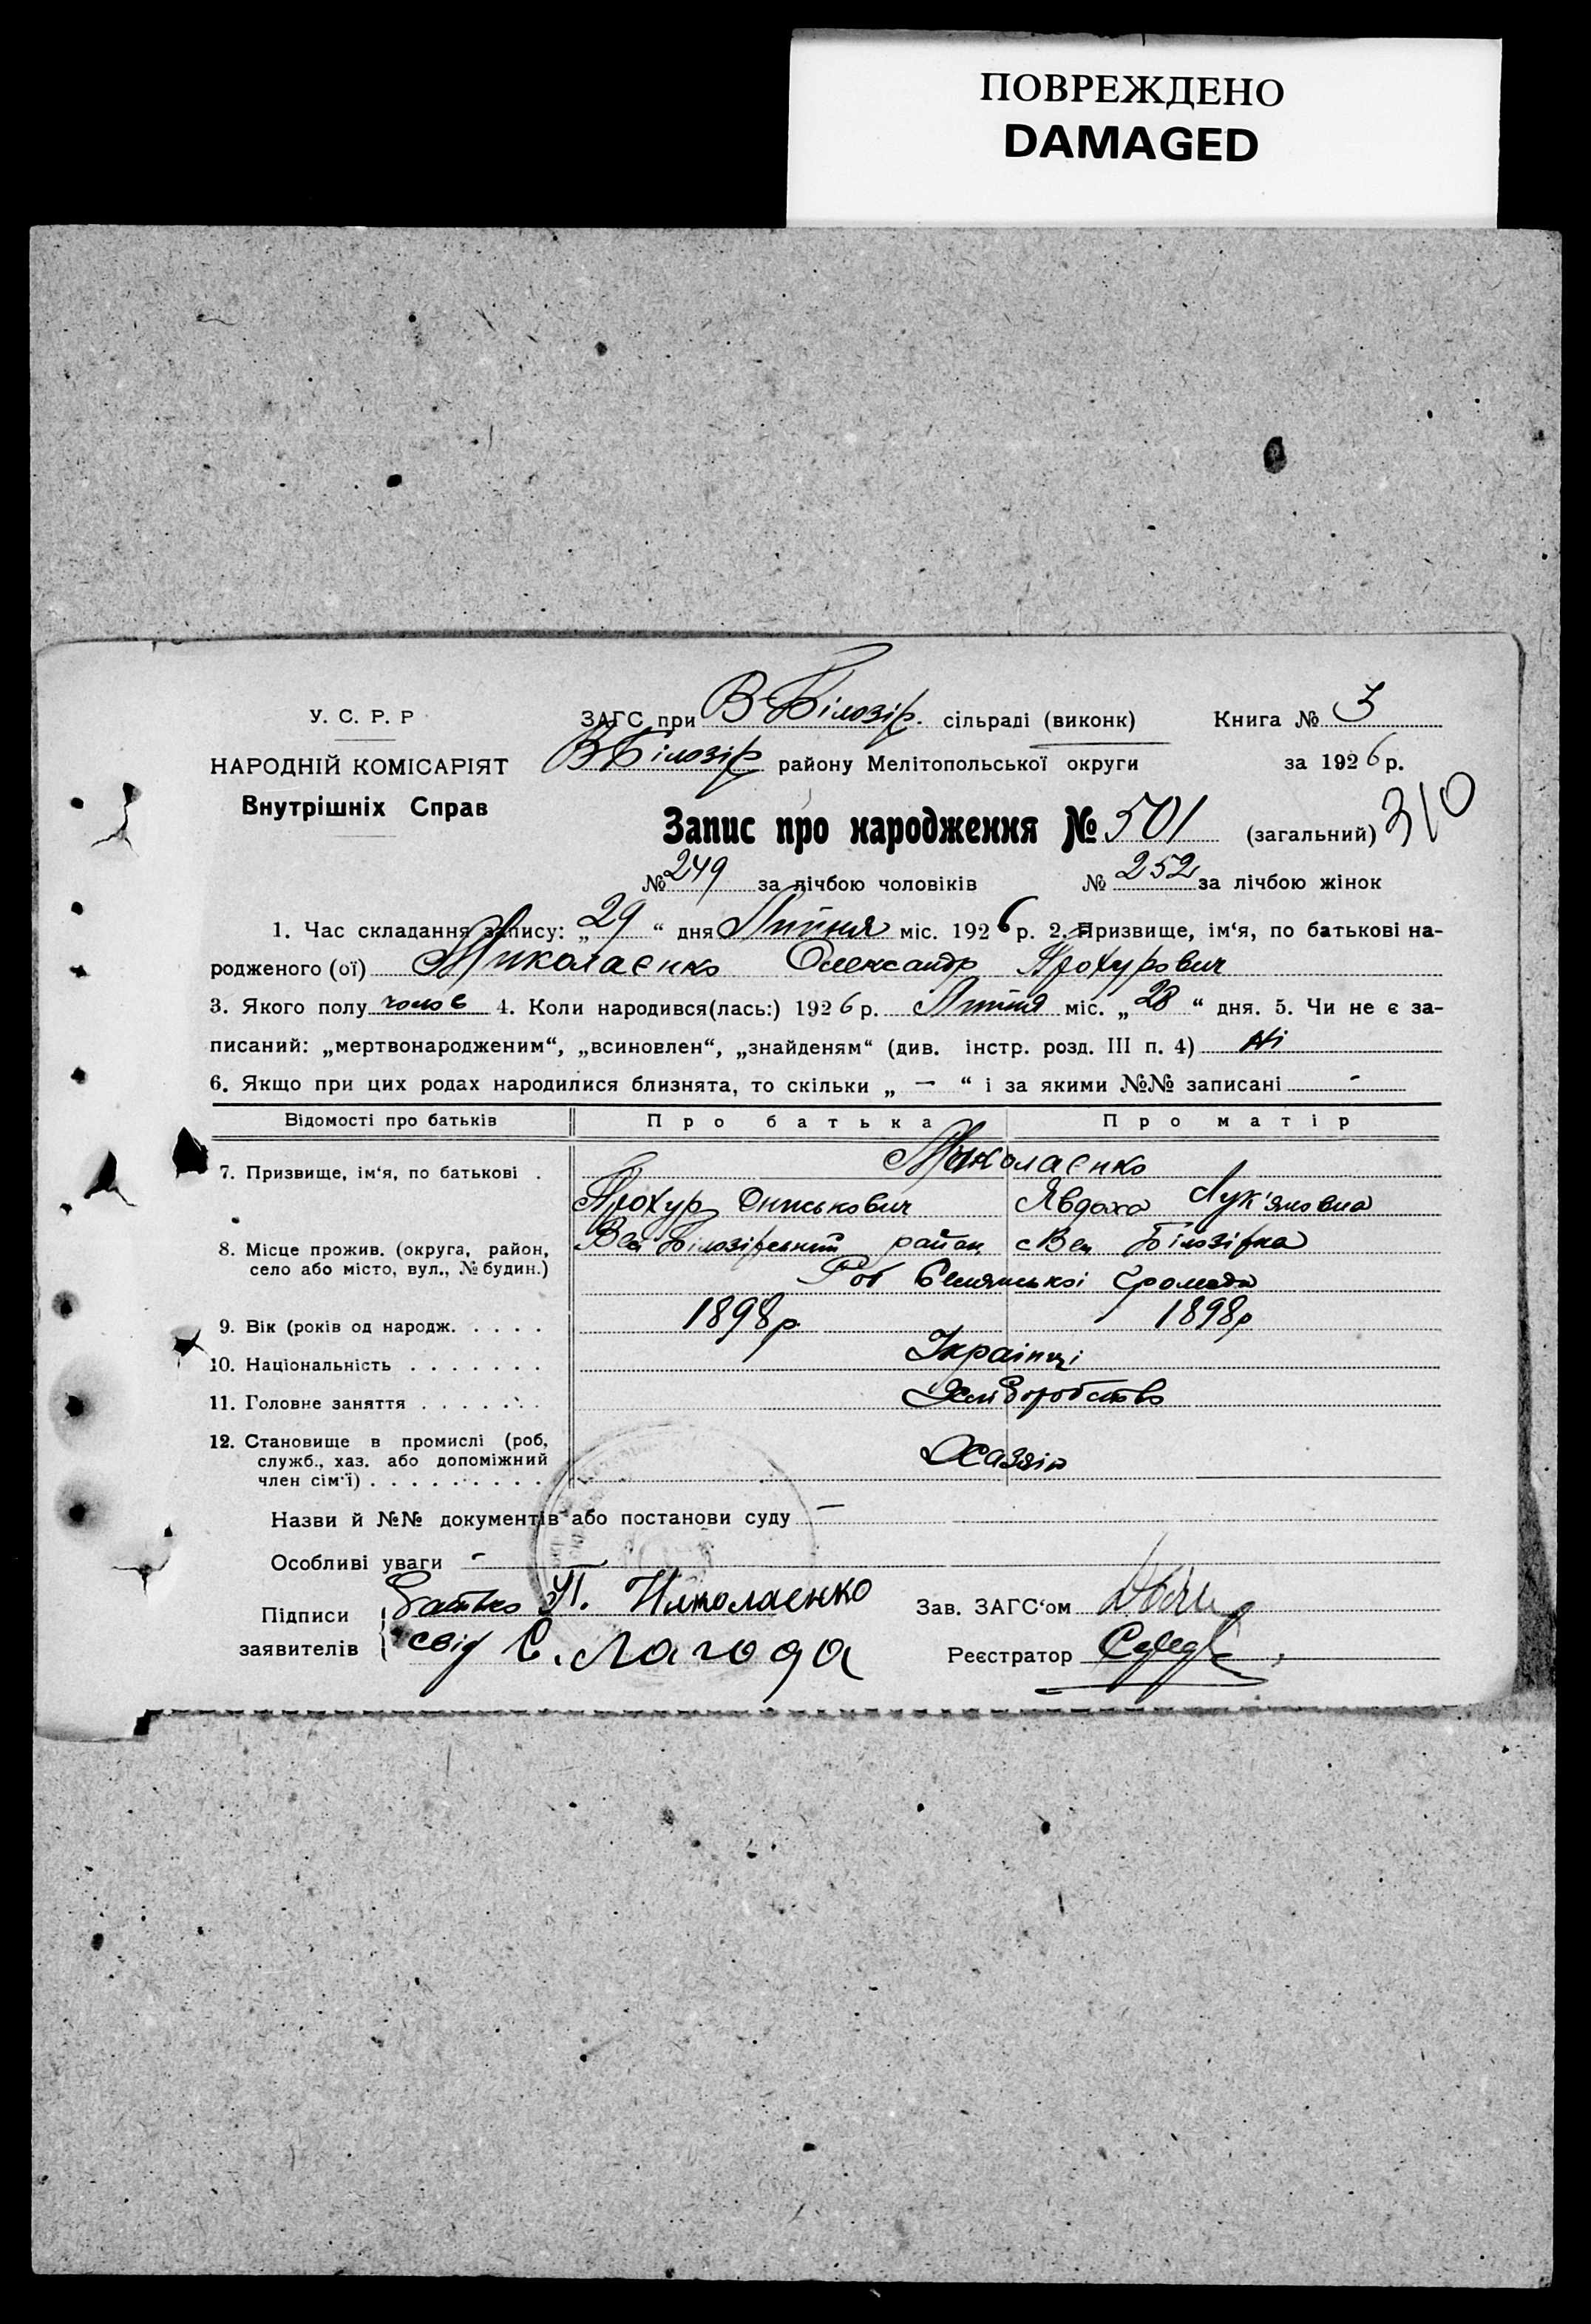 ПОВРЕЖДЕНО
DAMAGED
У. С. Р. Р
НАРОДНІЙ КОМІСАРІЯТ
Внутрішніх Справ
ЗАГС при В-Білозір. сільраді (виконк) Книга № 3
ВБілозір району Мелітопольської округи за 1926 р.
Запис про народження № 501 (загальний) 310
№ 249 за лічбою чоловіків № 252 за лічбою жінок
1. Час складання запису: „29“ дня Липня міс. 1926 р. 2. Призвище, ім‘я, по батькові на-
родженого (ої) Миколаєнко Олександр Прохурович
3. Якого полу чолов 4. Коли народився(лась:) 1926 р. Липня міс. „28“ дня. 5. Чи не є за-
писаний: „мертвонародженим“, „всиновлен“, „знайденям“ (див. інстр. розд. III п. 4) Ні
6. Якщо при цих родах народилися близнята, то скільки „ — “ і за якими №№ записані -
Відомості про батьків Про батька Про матір
7. Призвище, ім‘я, по батькові . Миколаєнко
Прохур Ониськович Явдоха Лук'яновна
8. Місце прожив. (округа, район,
село або місто, вул., № будин.)
Вел Білозірський район с Вел Білозірка
громада
9. Вік (років од народж. . . . . 1898р 1898р
10. Національність . . . . . . . Українці
11. Головне заняття . . . . . . . Хліборобство
12. Становище в промислі (роб,
служб., хаз. або допоміжний
член сім‘ї) . . . . . . . . . Хазяін
Назви й №№ документів або постанови суду —
Особливі уваги -
Підписи
заявителів
Батько П. Николаенко
свід С. Лагода
Зав. ЗАГС‘ом
Реєстратор